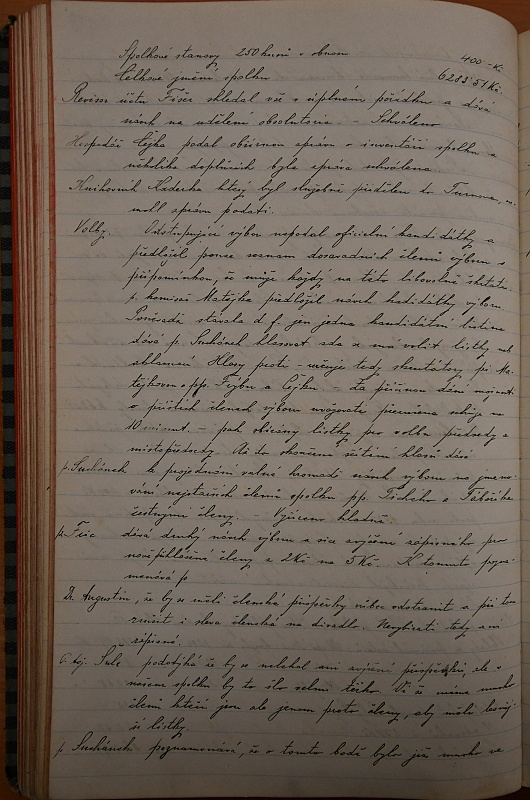 Spolkové stanovy 250 kusů v obnosu 400 - Kč
Celkové jmění spolku 6283·51 Kč.
Revisor účtu Fišer shledal vše v úplném pořádku a dává
návrh na udělení absolutoria. - Schváleno
Hospodář Cejka podal obšírnou zprávu o inventáři spolku a
několika doplňcích byla zpráva schválena
Knihovník Kaderka který byl služebně přidělen do Turnova,
mohl zprávu podati.
Volby. Odstupující výbor nepodal oficielní kandidátky a
předložil pouze seznam dosavadních členů výboru s
připomínkou, že může každý na této libovolně škrtati.
p. komisař Matějka předložil návrh kandidátky výboru
Poněvadž stávala d. f. jen jedna kandidátní listina
dává p. Suchánek hlasovat zda se má volit lístky neb
aklamací Hlasy proti - určuje tedy skrutátory pp. Ma-
tějkovou a pp. Fejbu a Cejku - Za příčinou dání možnosti
o příštích členech výboru uvažovati přerušena schůze na
10 minut. - pak obírány lístky pro volbu předsedy a
místopředsedy. Až do skončení sčítání hlasů dává
p. Suchánek k projednání valné hromadě návrh výboru na jmeno-
vání nejstarších členů spolku pp. a
čestnými členy. -
p. Fišer dává druhý návrh výboru a sice zvýšení zápisného pro
nově přihlášené členy z 2 Kč na 5 Kč. K tomuto pozna-
menává p
Dr. Augustin, že by se měli členské příspěvky vůbec odstranit a při tom
zrušit i sleva členská na divadlo. Nevybírati tedy ani
zápisné.
podotýká že by se nelekal ani zvýšení příspěvků, ale v
našem spolku by to šlo velmi těžko. máme mnoho
členů kteří jsou ale jenom proto členy, aby měli levněj-
ší lístky.
p. Suchánek poznamenává, že o tomto bodě bylo již mnoho ve